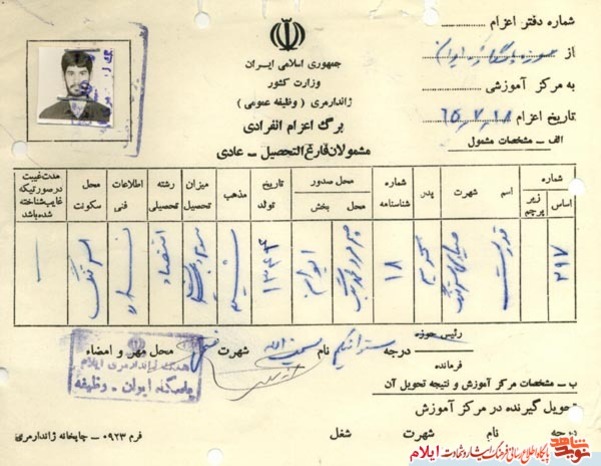 شماره دفتر اعزام
جمهوری اسلامی ایران
از حوزه پاسگاه ایوان
وزارت کشور
به مرکز آموزشی
ژاندارمری (وظیفه عمومی)
تاریخ اعزام ۶۵/۷/۱۸
برگ اعزام انفرادی
الف - مشخصات مشمول
مشمولان فارغ التحصیل - عادی
شماره اسم شهرت پدر شماره شناسنامه محل صدور تاریخ تولد مذهب میزان تحصیل رشته تحصیلی اطلاعات فنی محل سکونت مدت غیبت در صورتیکه غایب شناخته شده باشد
اساس زیر پرچم محل بخش
۲۱۷ قدرت کریم ۱۸ ایوان ۱۳۴۴ شیعه اقتصاد
رئیس حوزه
درجه ستوانیکم نام شهرت محل مهر و امضاء
فرمانده
هنگ ژاندارمری ایلام
پاسگاه ایوان - وظیفه
ب - مشخصات مرکز آموزش و نتیجه تحویل آن
تحویل گیرنده در مرکز آموزش
درجه نام شهرت شغل
فرم ۰۹۲۳ - چاپخانه ژاندارمری
نوید شاهد
پایگاه اطلاع رسانی فرهنگ ایثار و شهادت ایلام